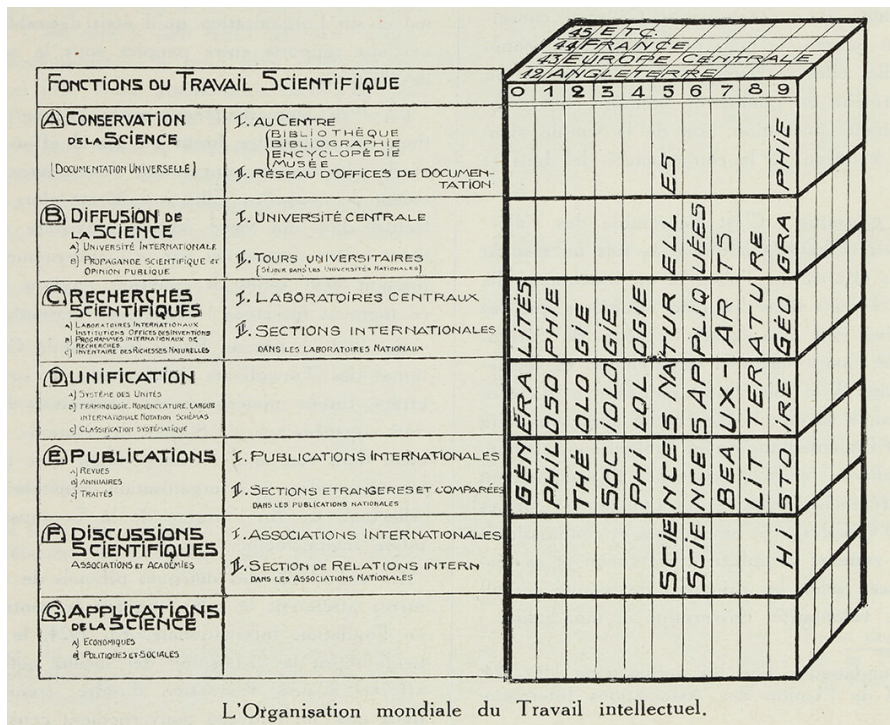 45 ETC.
44 FRANCE
43 EUROPE CENTRALE
42 ANGLETERRE
FONCTIONS DU TRAVAIL SCIENTIFIQUE
0 1 2 3 4 5 6 7 8 9
A CONSERVATION
DE LA SCIENCE
(DOCUMENTATION UNIVERSELLE)
I. AU CENTRE
BIBLIOTHÈQUE
BIBLIOGRAPHIE
ENCYCLOPÉDIE
MUSÉE
II. RÉSEAU D'OFFICES DE DOCUMEN-
TATION
B DIFFUSION DE
LA SCIENCE
A) UNIVERSITÉ INTERNATIONALE
B) PROPAGANDE SCIENTIFIQUE ET
OPINION PUBLIQUE
I. UNIVERSITÉ CENTRALE
II. TOURS UNIVERSITAIRES
(SÉJOUR DANS LES UNIVERSITÉS NATIONALES)
C RECHERCHES
SCIENTIFIQUES
A) LABORATOIRES INTERNATIONAUX
INSTITUTIONS OFFICES DES INVENTIONS
B) PROGRAMMES INTERNATIONAUX DE
RECHERCHES
C) INVENTAIRE DES RICHESSES NATURELLES
I. LABORATOIRES CENTRAUX
II. SECTIONS INTERNATIONALES
DANS LES LABORATOIRES NATIONAUX
D UNIFICATION
A) SYSTÈME DES UNITÉS
B) TERMINOLOGIE, NOMENCLATURE, LANGUE
INTERNATIONALE NOTATION SCHÉMAS
C) CLASSIFICATION SYSTÉMATIQUE
E PUBLICATIONS
A) REVUES
B) ANNUAIRES
C) TRAITÉS
I. PUBLICATIONS INTERNATIONALES
II. SECTIONS ETRANGERES ET COMPARÉES
DANS LES PUBLICATIONS NATIONALES
F DISCUSSIONS
SCIENTIFIQUES
ASSOCIATIONS ET ACADÉMIES
I. ASSOCIATIONS INTERNATIONALES
II. SECTION DE RELATIONS INTERN
DANS LES ASSOCIATIONS NATIONALES
G APPLICATIONS
DE LA SCIENCE
A) ECONOMIQUES
B) POLITIQUES ET SOCIALES
GÉNÉRALITÉS
PHILOSOPHIE
THÉOLOGIE
SOCIOLOGIE
PHILOLOGIE
SCIENCES NATURELLES
SCIENCES APPLIQUÉES
BEAUX-ARTS
LITTERATURE
HISTOIRE GÉOGRAPHIE
L'Organisation mondiale du Travail intellectuel.